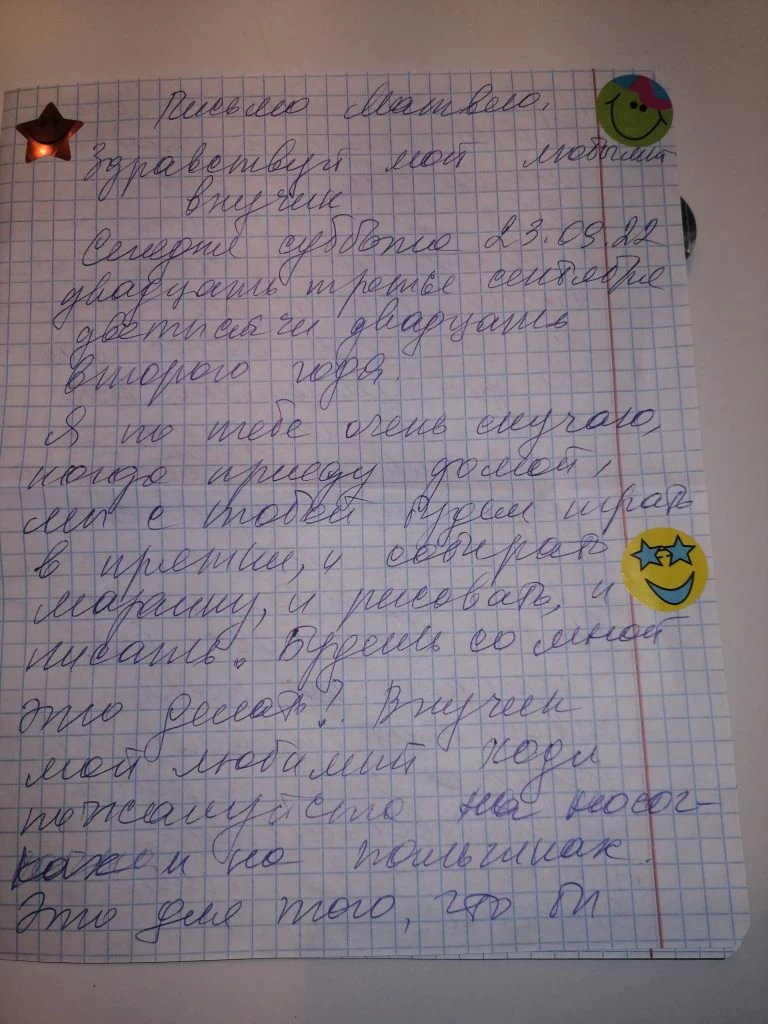 Письмо Матвею.
Здравствуй мой любымий
внучик
Сегодня суббота 23.09.22
двадцать третье сентября
дветысячи двадцать
второго года.
Я по тебе очень скучаю,
когда приеду домой,
мы с тобой будем играть
в прятки, и собирать
марашку, и рисовать, и
писать. Будешь со мной
это делать? Внучек
мой любимий ходи
пожалуйсто на носоч-
ках и на пальчиках.
Это для того, что бы